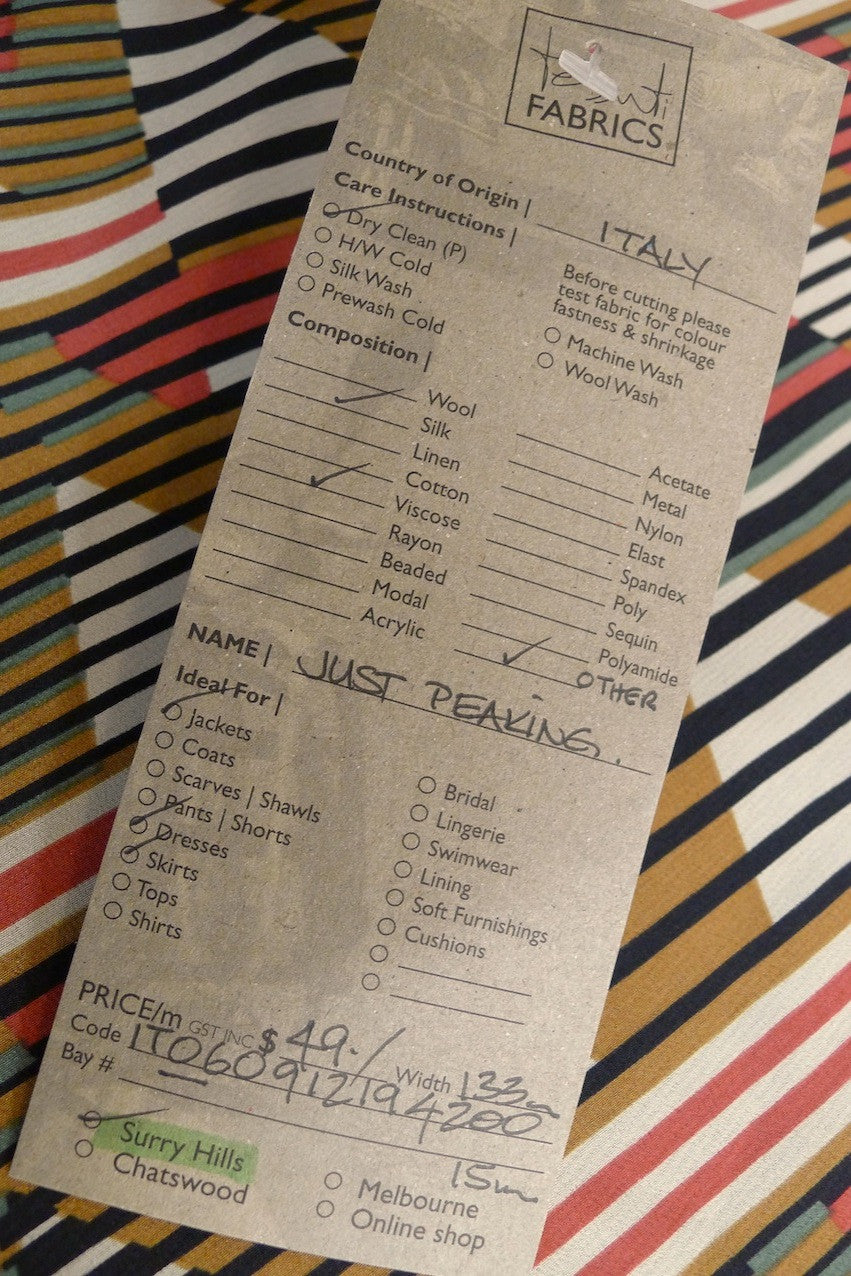 tessuti
FABRICS
Country of Origin | ITALY
Care Instructions |
Dry Clean (P)
H/W Cold
Silk Wash
Prewash Cold
Before cutting please
test fabric for colour
fastness & shrinkage
Machine Wash
Wool Wash
Composition |
Wool
Silk
Linen
Cotton
Viscose
Rayon
Beaded
Modal
Acrylic
Acetate
Metal
Nylon
Elast
Spandex
Poly
Sequin
Polyamide
OTHER
NAME | JUST PEAKING.
Ideal For |
Jackets
Coats
Scarves | Shawls
Pants | Shorts
Dresses
Skirts
Tops
Shirts
Bridal
Lingerie
Swimwear
Lining
Soft Furnishings
Cushions
PRICE/m GST INC $49./ Width 133cm
Code ITO60912194200
Bay #
15m
Surry Hills
Chatswood
Melbourne
Online shop